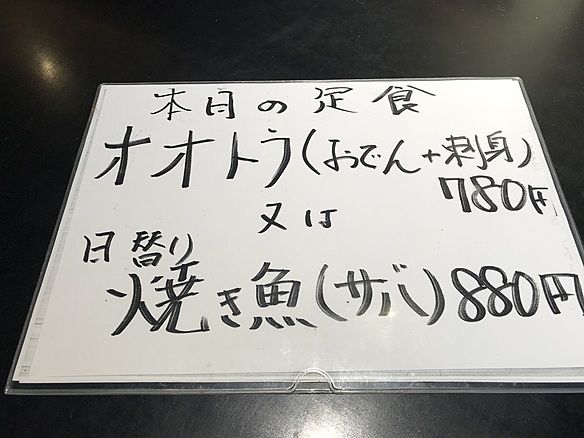 本日の定食
オオトラ(おでん+刺身)
780円
又は
日替り
焼き魚(サバ)880円